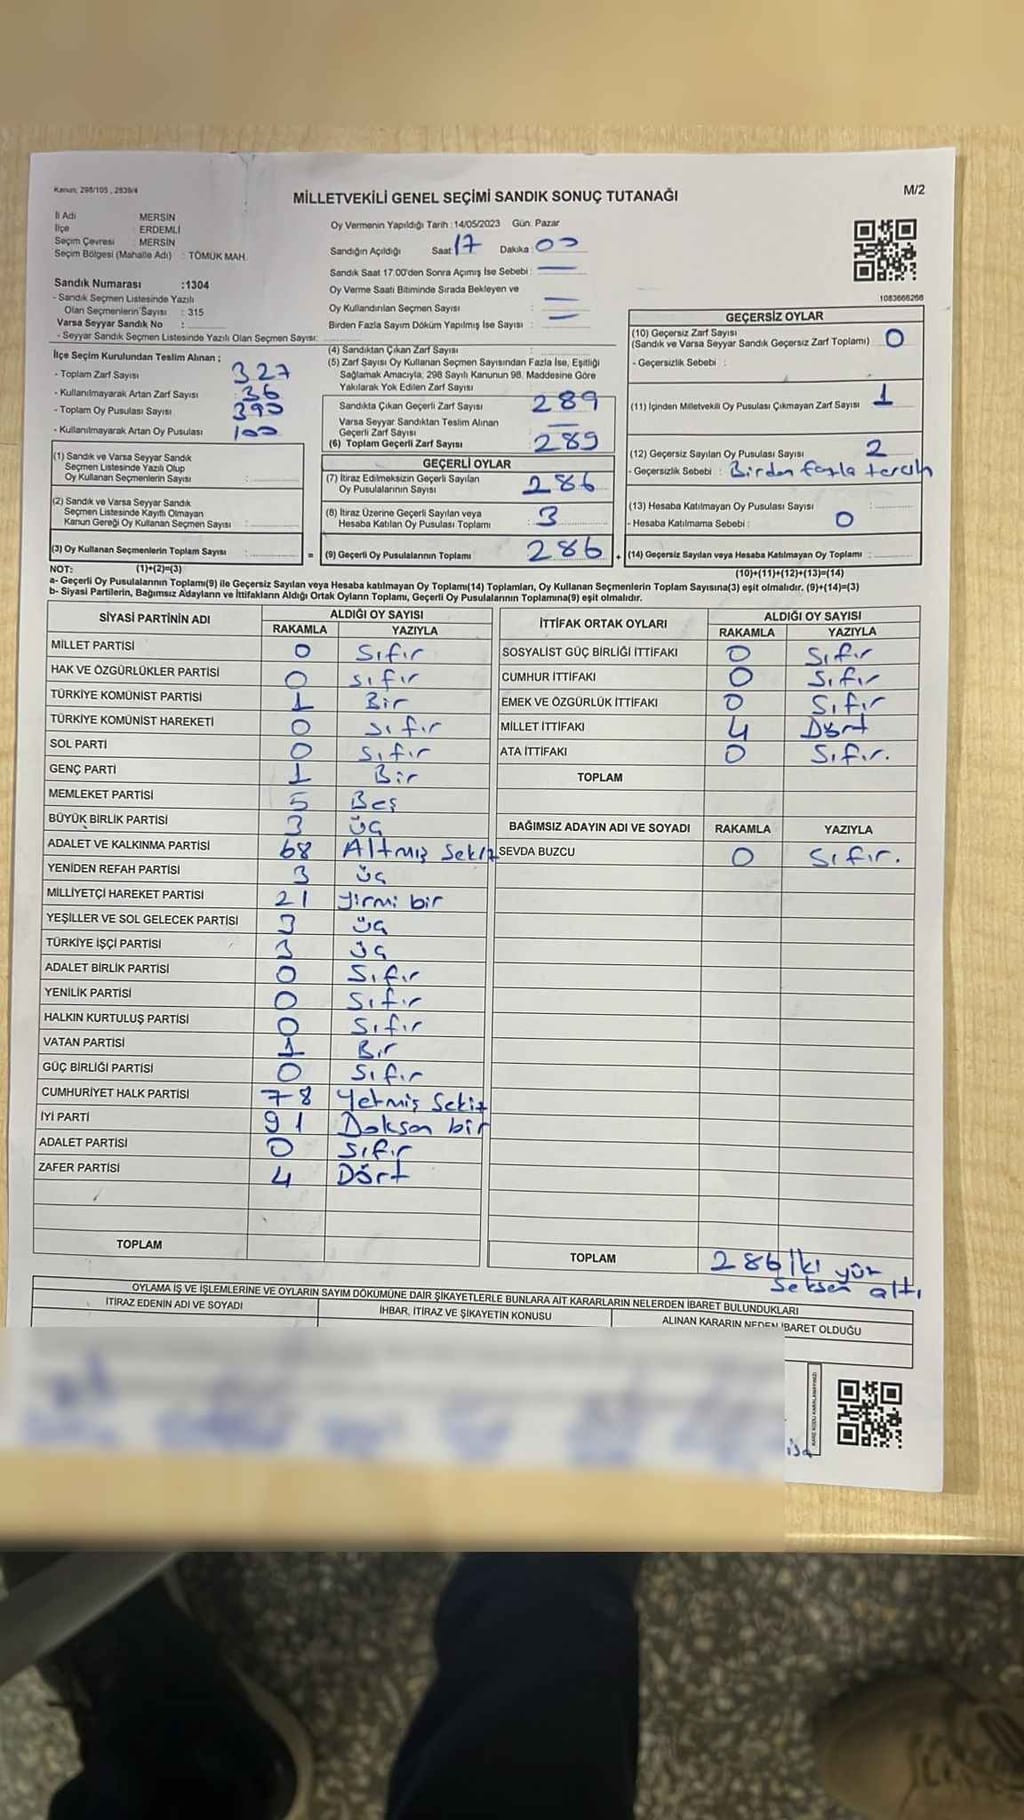 Kanun: 298/105 , 2839/4
MİLLETVEKİLİ GENEL SEÇİMİ SANDIK SONUÇ TUTANAĞI
M/2
İl Adı MERSİN
İlçe : ERDEMLİ
Seçim Çevresi : MERSİN
Seçim Bölgesi (Mahalle Adı) : TÖMÜK MAH.
Sandık Numarası :1304
- Sandık Seçmen Listesinde Yazılı
Olan Seçmenlerin Sayısı : 315
Varsa Seyyar Sandık No :
- Seyyar Sandık Seçmen Listesinde Yazılı Olan Seçmen Sayısı:
Oy Vermenin Yapıldığı Tarih :14/05/2023 Gün: Pazar
Sandığın Açıldığı Saat: 17 Dakika: 00
Sandık Saat 17.00'den Sonra Açımış İse Sebebi : —
Oy Verme Saati Bitiminde Sırada Bekleyen ve
Oy Kullandırılan Seçmen Sayısı : —
Birden Fazla Sayım Döküm Yapılmış İse Sayısı : —
1083666266
İlçe Seçim Kurulundan Teslim Alınan ;
- Toplam Zarf Sayısı 327
- Kullanılmayarak Artan Zarf Sayısı 36
- Toplam Oy Pusulası Sayısı 390
- Kullanılmayarak Artan Oy Pusulası 100
(1) Sandık ve Varsa Seyyar Sandık
Seçmen Listesinde Yazılı Olup
Oy Kullanan Seçmenlerin Sayısı :
(2) Sandık ve Varsa Seyyar Sandık
Seçmen Listesinde Kayıtlı Olmayan
Kanun Gereği Oy Kullanan Seçmen Sayısı :
(3) Oy Kullanan Seçmenlerin Toplam Sayısı : =
(4) Sandıktan Çıkan Zarf Sayısı :
(5) Zarf Sayısı Oy Kullanan Seçmen Sayısından Fazla İse, Eşitliği
Sağlamak Amacıyla, 298 Sayılı Kanunun 98. Maddesine Göre
Yakılarak Yok Edilen Zarf Sayısı
Sandıkta Çıkan Geçerli Zarf Sayısı 289
Varsa Seyyar Sandıktan Teslim Alınan
Geçerli Zarf Sayısı —
(6) Toplam Geçerli Zarf Sayısı 289
GEÇERLİ OYLAR
(7) İtiraz Edilmeksizin Geçerli Sayılan
Oy Pusulalarının Sayısı 286
(8) İtiraz Üzerine Geçerli Sayılan veya
Hesaba Katılan Oy Pusulası Toplamı 3
(9) Geçerli Oy Pusulalarının Toplamı 286 +
GEÇERSİZ OYLAR
(10) Geçersiz Zarf Sayısı
(Sandık ve Varsa Seyyar Sandık Geçersiz Zarf Toplamı) 0
- Geçersizlik Sebebi :
(11) İçinden Milletvekili Oy Pusulası Çıkmayan Zarf Sayısı 1
(12) Geçersiz Sayılan Oy Pusulası Sayısı 2
- Geçersizlik Sebebi : Birden fazla tercih
(13) Hesaba Katılmayan Oy Pusulası Sayısı :
- Hesaba Katılmama Sebebi : 0
(14) Geçersiz Sayılan veya Hesaba Katılmayan Oy Toplamı :
NOT: (1)+(2)=(3) (10)+(11)+(12)+(13)=(14)
a- Geçerli Oy Pusulalarının Toplamı(9) ile Geçersiz Sayılan veya Hesaba katılmayan Oy Toplamı(14) Toplamları, Oy Kullanan Seçmenlerin Toplam Sayısına(3) eşit olmalıdır. (9)+(14)=(3)
b- Siyasi Partilerin, Bağımsız Adayların ve İttifakların Aldığı Ortak Oyların Toplamı, Geçerli Oy Pusulalarının Toplamına(9) eşit olmalıdır.
SİYASİ PARTİNİN ADI ALDIĞI OY SAYISI
RAKAMLA YAZIYLA
MİLLET PARTİSİ 0 Sıfır
HAK VE ÖZGÜRLÜKLER PARTİSİ 0 sıfır
TÜRKİYE KOMÜNİST PARTİSİ 1 Bir
TÜRKİYE KOMÜNİST HAREKETİ 0 sıfır
SOL PARTİ 0 Sıfır
GENÇ PARTİ 1 Bir
MEMLEKET PARTİSİ 5 Beş
BÜYÜK BİRLİK PARTİSİ 3 üç
ADALET VE KALKINMA PARTİSİ 68 Altmış Sekiz
YENİDEN REFAH PARTİSİ 3 üç
MİLLİYETÇİ HAREKET PARTİSİ 21 Yirmi bir
YEŞİLLER VE SOL GELECEK PARTİSİ 3 üç
TÜRKİYE İŞÇİ PARTİSİ 3 üç
ADALET BİRLİK PARTİSİ 0 Sıfır
YENİLİK PARTİSİ 0 Sıfır
HALKIN KURTULUŞ PARTİSİ 0 Sıfır
VATAN PARTİSİ 1 Bir
GÜÇ BİRLİĞİ PARTİSİ 0 Sıfır
CUMHURİYET HALK PARTİSİ 78 Yetmiş Sekiz
İYİ PARTİ 91 Doksan bir
ADALET PARTİSİ 0 Sıfır
ZAFER PARTİSİ 4 Dört
TOPLAM
İTTİFAK ORTAK OYLARI ALDIĞI OY SAYISI
RAKAMLA YAZIYLA
SOSYALİST GÜÇ BİRLİĞİ İTTİFAKI 0 Sıfır
CUMHUR İTTİFAKI 0 Sıfır
EMEK VE ÖZGÜRLÜK İTTİFAKI 0 Sıfır
MİLLET İTTİFAKI 4 Dört
ATA İTTİFAKI 0 Sıfır.
TOPLAM
BAĞIMSIZ ADAYIN ADI VE SOYADI RAKAMLA YAZIYLA
SEVDA BUZCU 0 Sıfır.
TOPLAM 286 İki yüz
seksen altı
OYLAMA İŞ VE İŞLEMLERİNE VE OYLARIN SAYIM DÖKÜMÜNE DAİR ŞİKAYETLERLE BUNLARA AİT KARARLARIN NELERDEN İBARET BULUNDUKLARI
İTİRAZ EDENİN ADI VE SOYADI İHBAR, İTİRAZ VE ŞİKAYETİN KONUSU ALINAN KARARIN NEDEN İBARET OLDUĞU